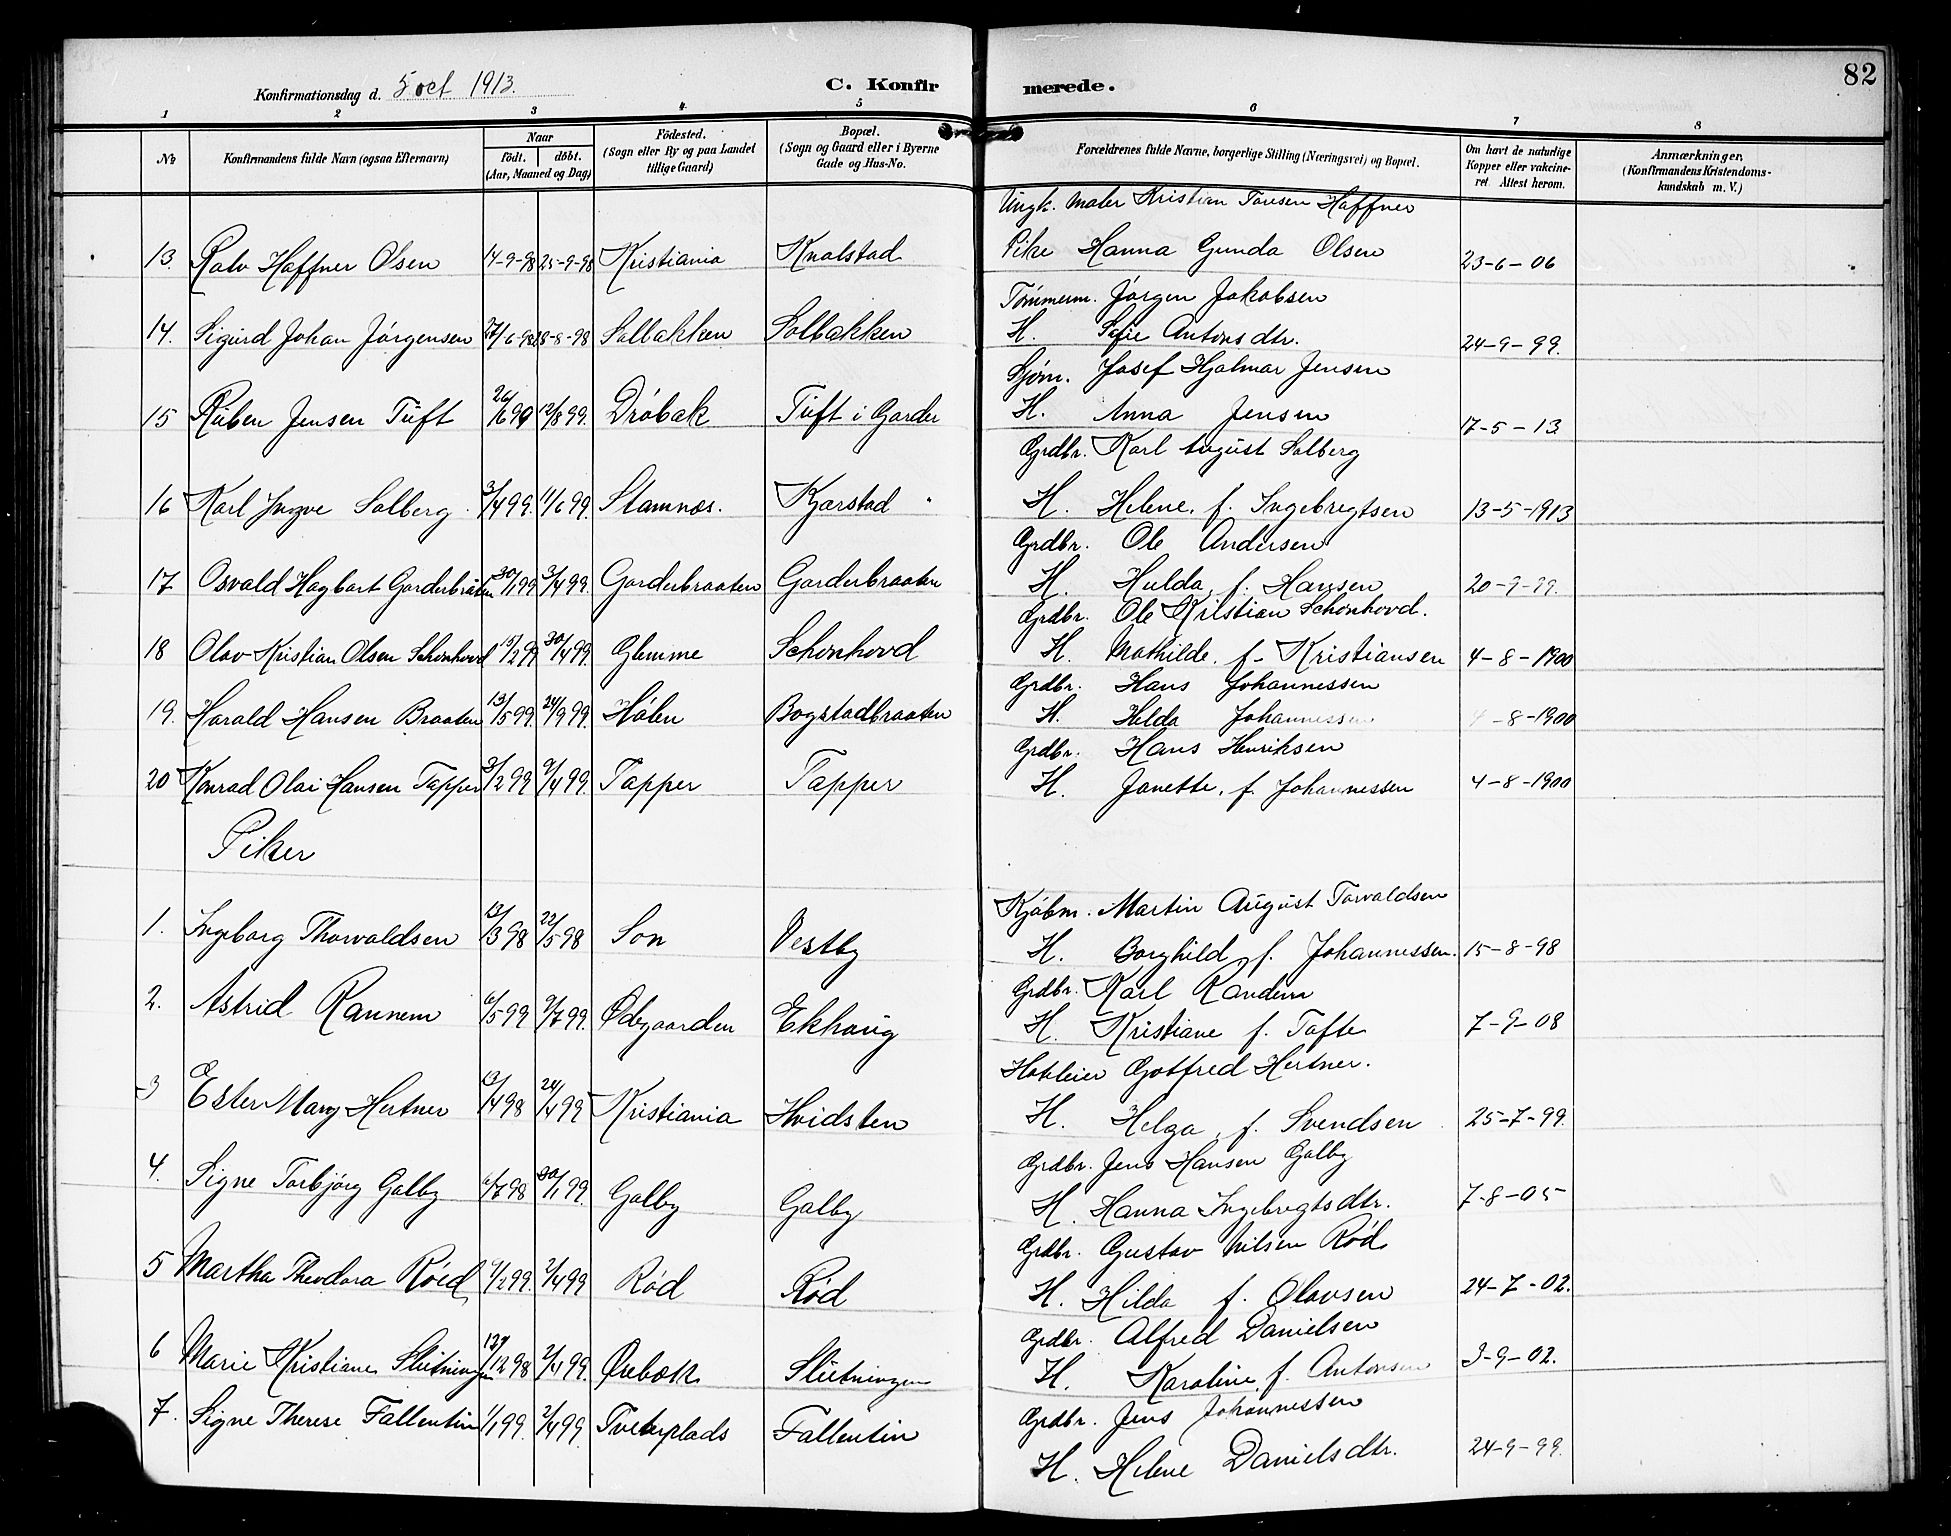 82
Konfirmationsdag d. 5 oct 1913.
C. Konfirmerede.
1 2 3 4 5 6 7 8
No
Konfirmandens fulde Navn (ogsaa Efternavn)
Naar
født. døbt.
(Aar, Maaned og Dag)
Födested.
(Sogn eller By og paa Landet
tillige Gaard)
Bopæl.
(Sogn og Gaard eller i Byerne
Gade og Hus-No.
Forældrenes fulde Navne, borgerlige Stilling (Næringsvei) og Bopæl.
Om havt de naturlige
Kopper eller vakcine-
ret Attest herom.
Anmærkninger.
(Konfirmandens Kristendoms-
kundskab m. V.)
Ungk. Maler Kristian Tonesen Haffner
13. Ralv Haffner Olsen 14-9-98 25-9-98 Kristiania Knalstad Pike Hanna Gunda Olsen 23-6-06
Tømmerm. Jørgen Jakobsen
14. Sigurd Johan Jørgensen 27/6-98 28-8-98 Solbakken Solbakken H. Sofie Antonsdtr. 24-9-99.
Sjøm. Josef Hjalmar Jensen
15 Ruben Jensen Tuft 26/6 99 12/8 99. Drøbak Tuft i Garder H. Anna Jensen 17-5-13
Grdbr. Karl August Solberg
16 Karl Yngve Solberg 3/4 99. 11/6 99. Stamnæs. Kjærstad H. Helene, f. Ingebregtsen 13-5-1913
Grdbr. Ole Andersen
17 Osvald Hagbart Garderbråten 30/1 99 3/4 99. Garderbraaten Garderbraaten H. Hulda, f. Hansen 20-9-99.
Grdbr. Ole Kristian Schønhovd.
18 Olav Kristian Olsen Schønhovd 15/2 99 30/4 99. Glemme Schønhovd H. Mathilde, f. Kristiansen 4-8-1900
Grdbr. Hans Johannessen
19. Harald Hansen Braaten 13/5 99. 24/9 99. Hølen Bogstadbraaten H. Hilda Johannessen 4-8-1900
Grdbr. Hans Henriksen
20 Konrad Olai Hansen Tapper 3/2 99 9/4 99. Tapper Tapper H. Janette, f. Johannessen 4-8-1900
Piker
Kjøbm. Martin August Torvaldsen
1. Ingeborg Thorvaldsen 13/3 98 22/5 98 Son Vestby H. Borghild, f. Johannessen. 15-8-98
Grdbr. Karl Randem
2. Astrid Rannem 6/5 99 9/7 99. Ødegaarden Ekhaug H. Kristiane f. Tofte 7-9-08
Hoteleier Gotfred Hertner.
3 Ester Mary Hertner 13/4 98 24/4 99 Kristiania Hvidsten H. Helga, f. Svendsen 25-7-99.
Grdbr. Jens Hansen Galby
4. Signe Torbjørg Galby 6/7 98 30/1 99. Galby Galby H. Hanna Ingebregtsdtr. 7-8-05
Grdbr. Gustav Nilsen Rød
5 Martha Theodora Røed 9/2 99. 2/4 99 Rød Rød H. Hilda f. Olavsen 24-7-02.
Grdbr. Alfred Danielsen
6 Marie Kristiane Slutningen 12/12 98 2/4 99. Øvebæk Slutningen H. Karoline, f. Antonsen 3-9-02.
Grdbr. Jens Johannessen
7. Signe Therese Fallentin 1/1 99. 2/4 99. Tveterplads Fallentin H. Helene Danielsdtr. 24-9-99.